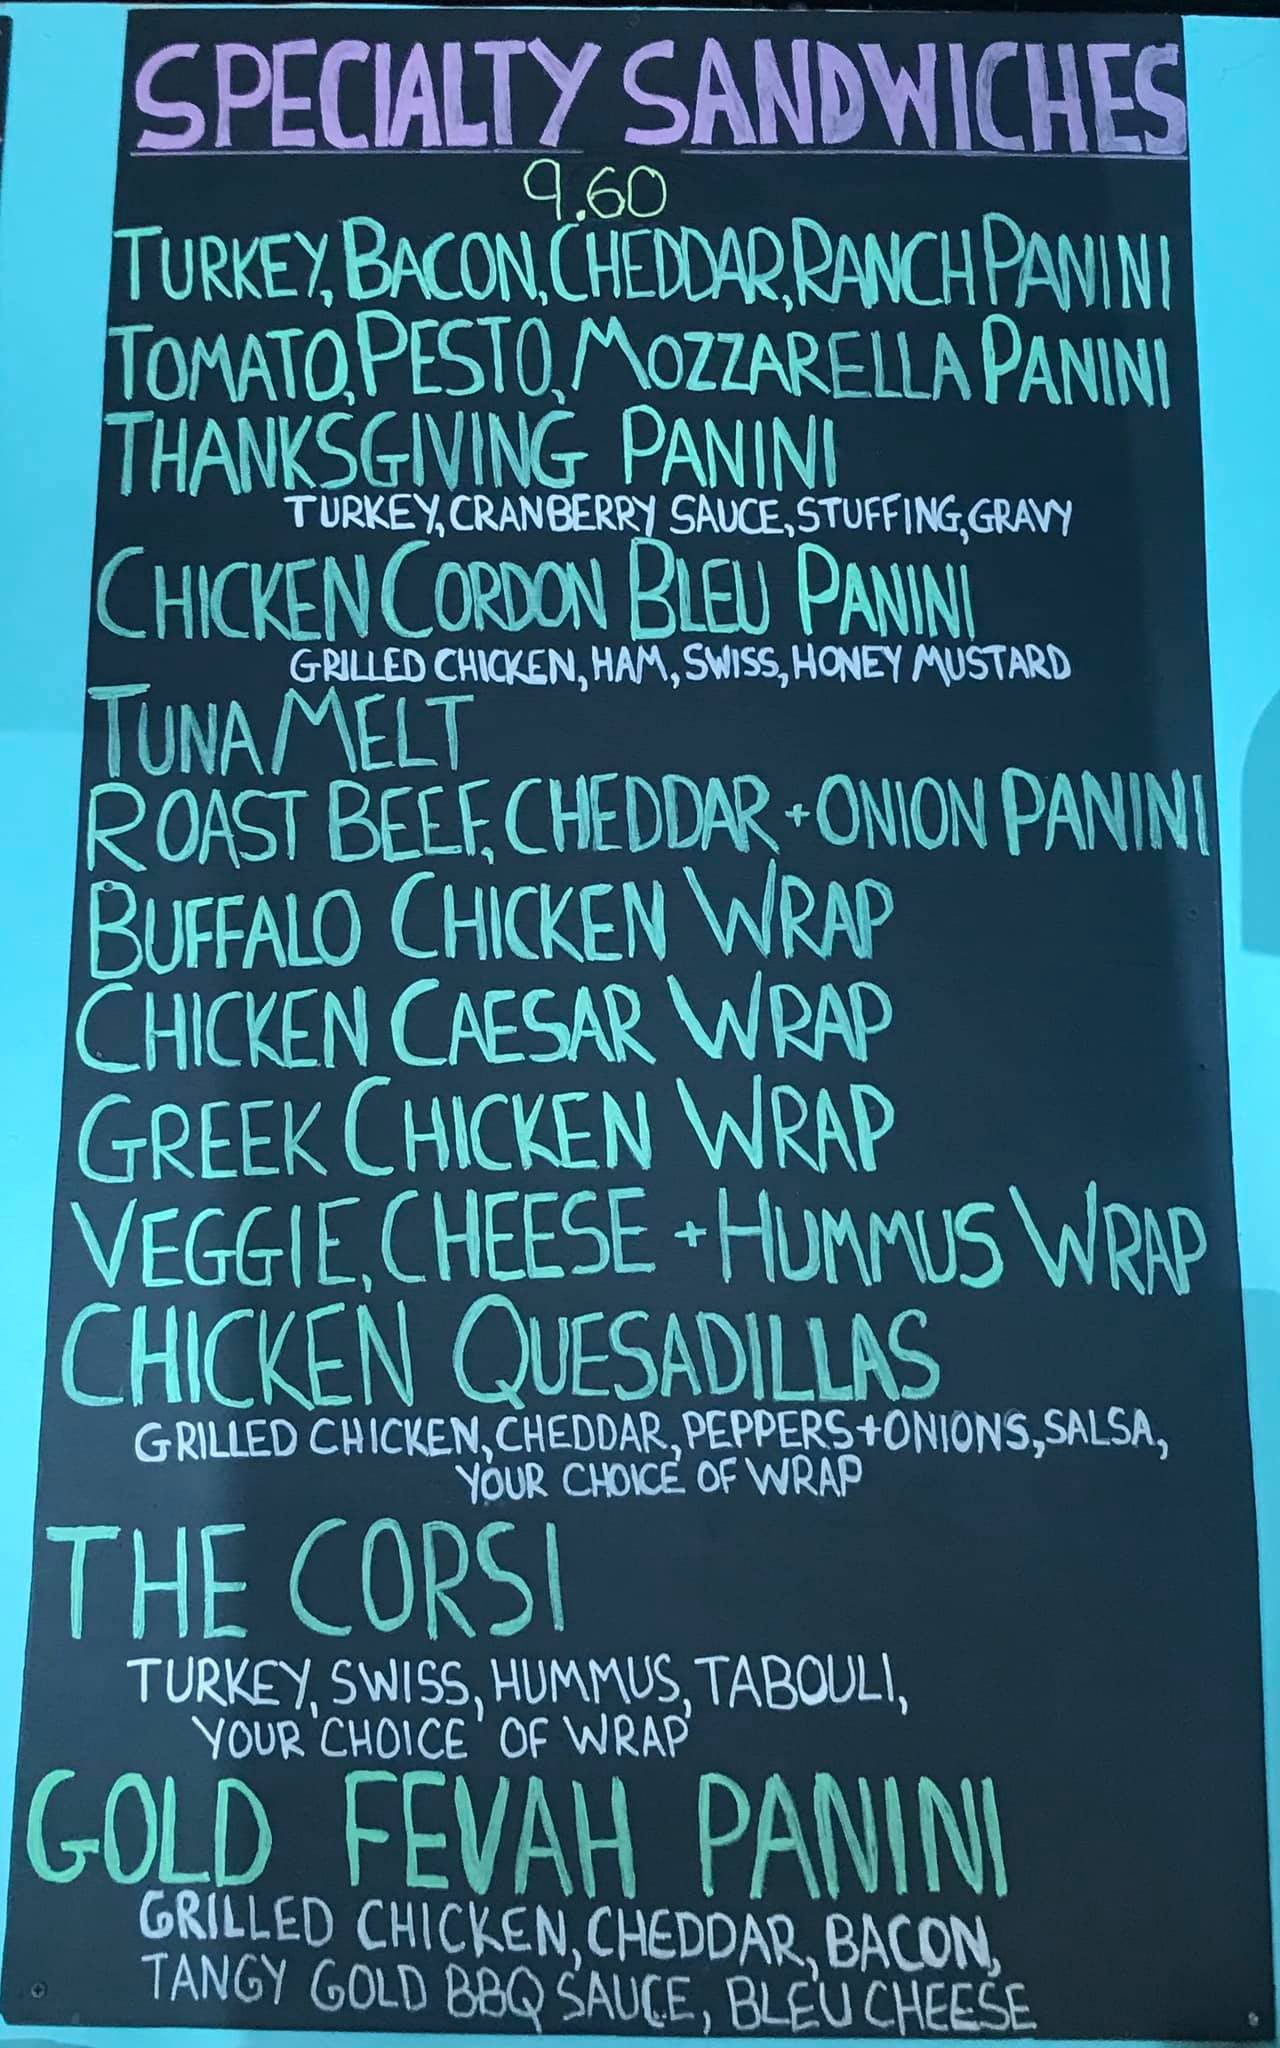 SPECIALTY SANDWICHES
9.60
TURKEY, BACON, CHEDDAR, RANCH PANINI
TOMATO, PESTO, MOZZARELLA PANINI
THANKSGIVING PANINI
TURKEY, CRANBERRY SAUCE, STUFFING, GRAVY
CHICKEN CORDON BLEU PANINI
GRILLED CHICKEN, HAM, SWISS, HONEY MUSTARD
TUNA MELT
ROAST BEEF, CHEDDAR + ONION PANINI
BUFFALO CHICKEN WRAP
CHICKEN CAESAR WRAP
GREEK CHICKEN WRAP
VEGGIE, CHEESE + HUMMUS WRAP
CHICKEN QUESADILLAS
GRILLED CHICKEN, CHEDDAR, PEPPERS + ONIONS, SALSA,
YOUR CHOICE OF WRAP
THE CORSI
TURKEY, SWISS, HUMMUS, TABOULI,
YOUR CHOICE OF WRAP
GOLD FEVAH PANINI
GRILLED CHICKEN, CHEDDAR, BACON,
TANGY GOLD BBQ SAUCE, BLEU CHEESE